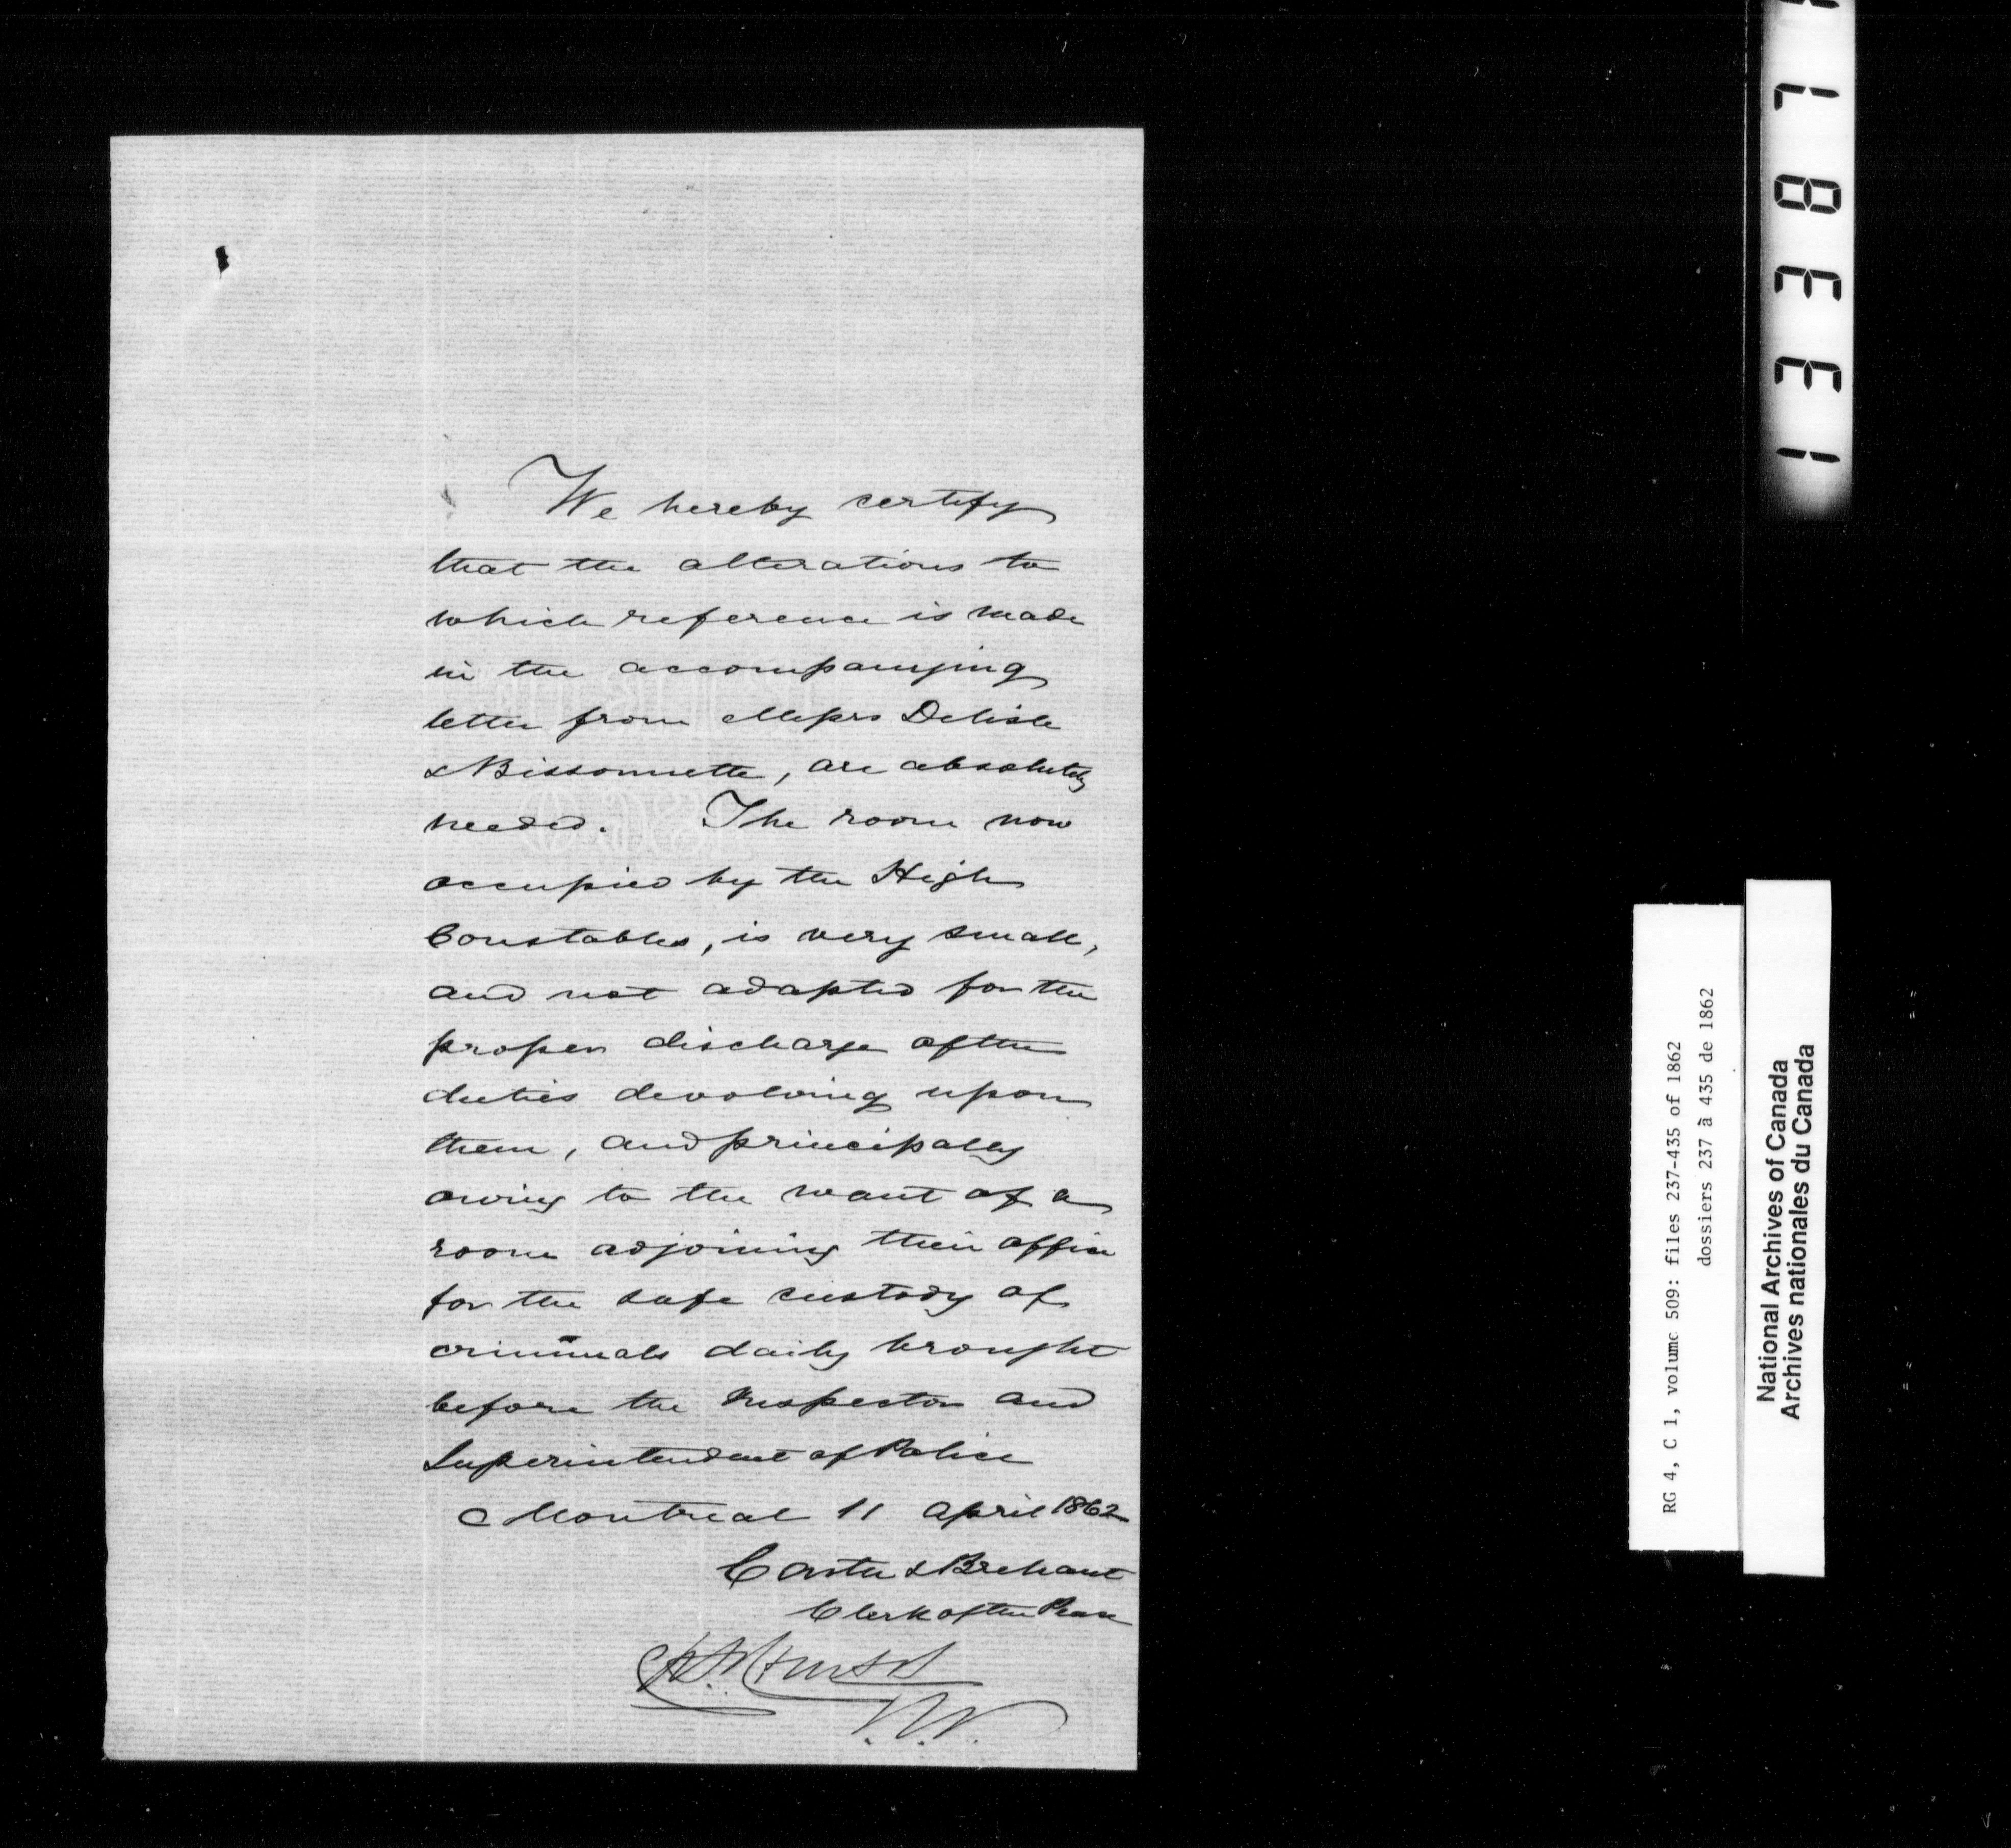 We hereby certify
that the alterations to
which reference is made
in the accompanying
letter from Messrs Delisle
& Bissonnette, are absolutely
needed. The room now
occupied by the High
Constables, is very small,
and not adapted for the
proper discharge of the
duties devolving upon
them, and principally
owing to the want of a
room adjoining their office
for the safe custody of
criminals daily brought
before the Inspector and
Superintendent of Police
Montreal 11 April 1862
Carter & Brehaut
Clerk of the Peace
13387
RG 4, C 1, volume 509: files 237-435 of 1862
dossiers 237 à 435 de 1862
National Archives of Canada
Archives nationales du Canada